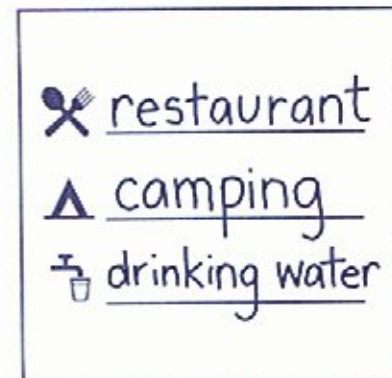 restaurant
camping
drinking water